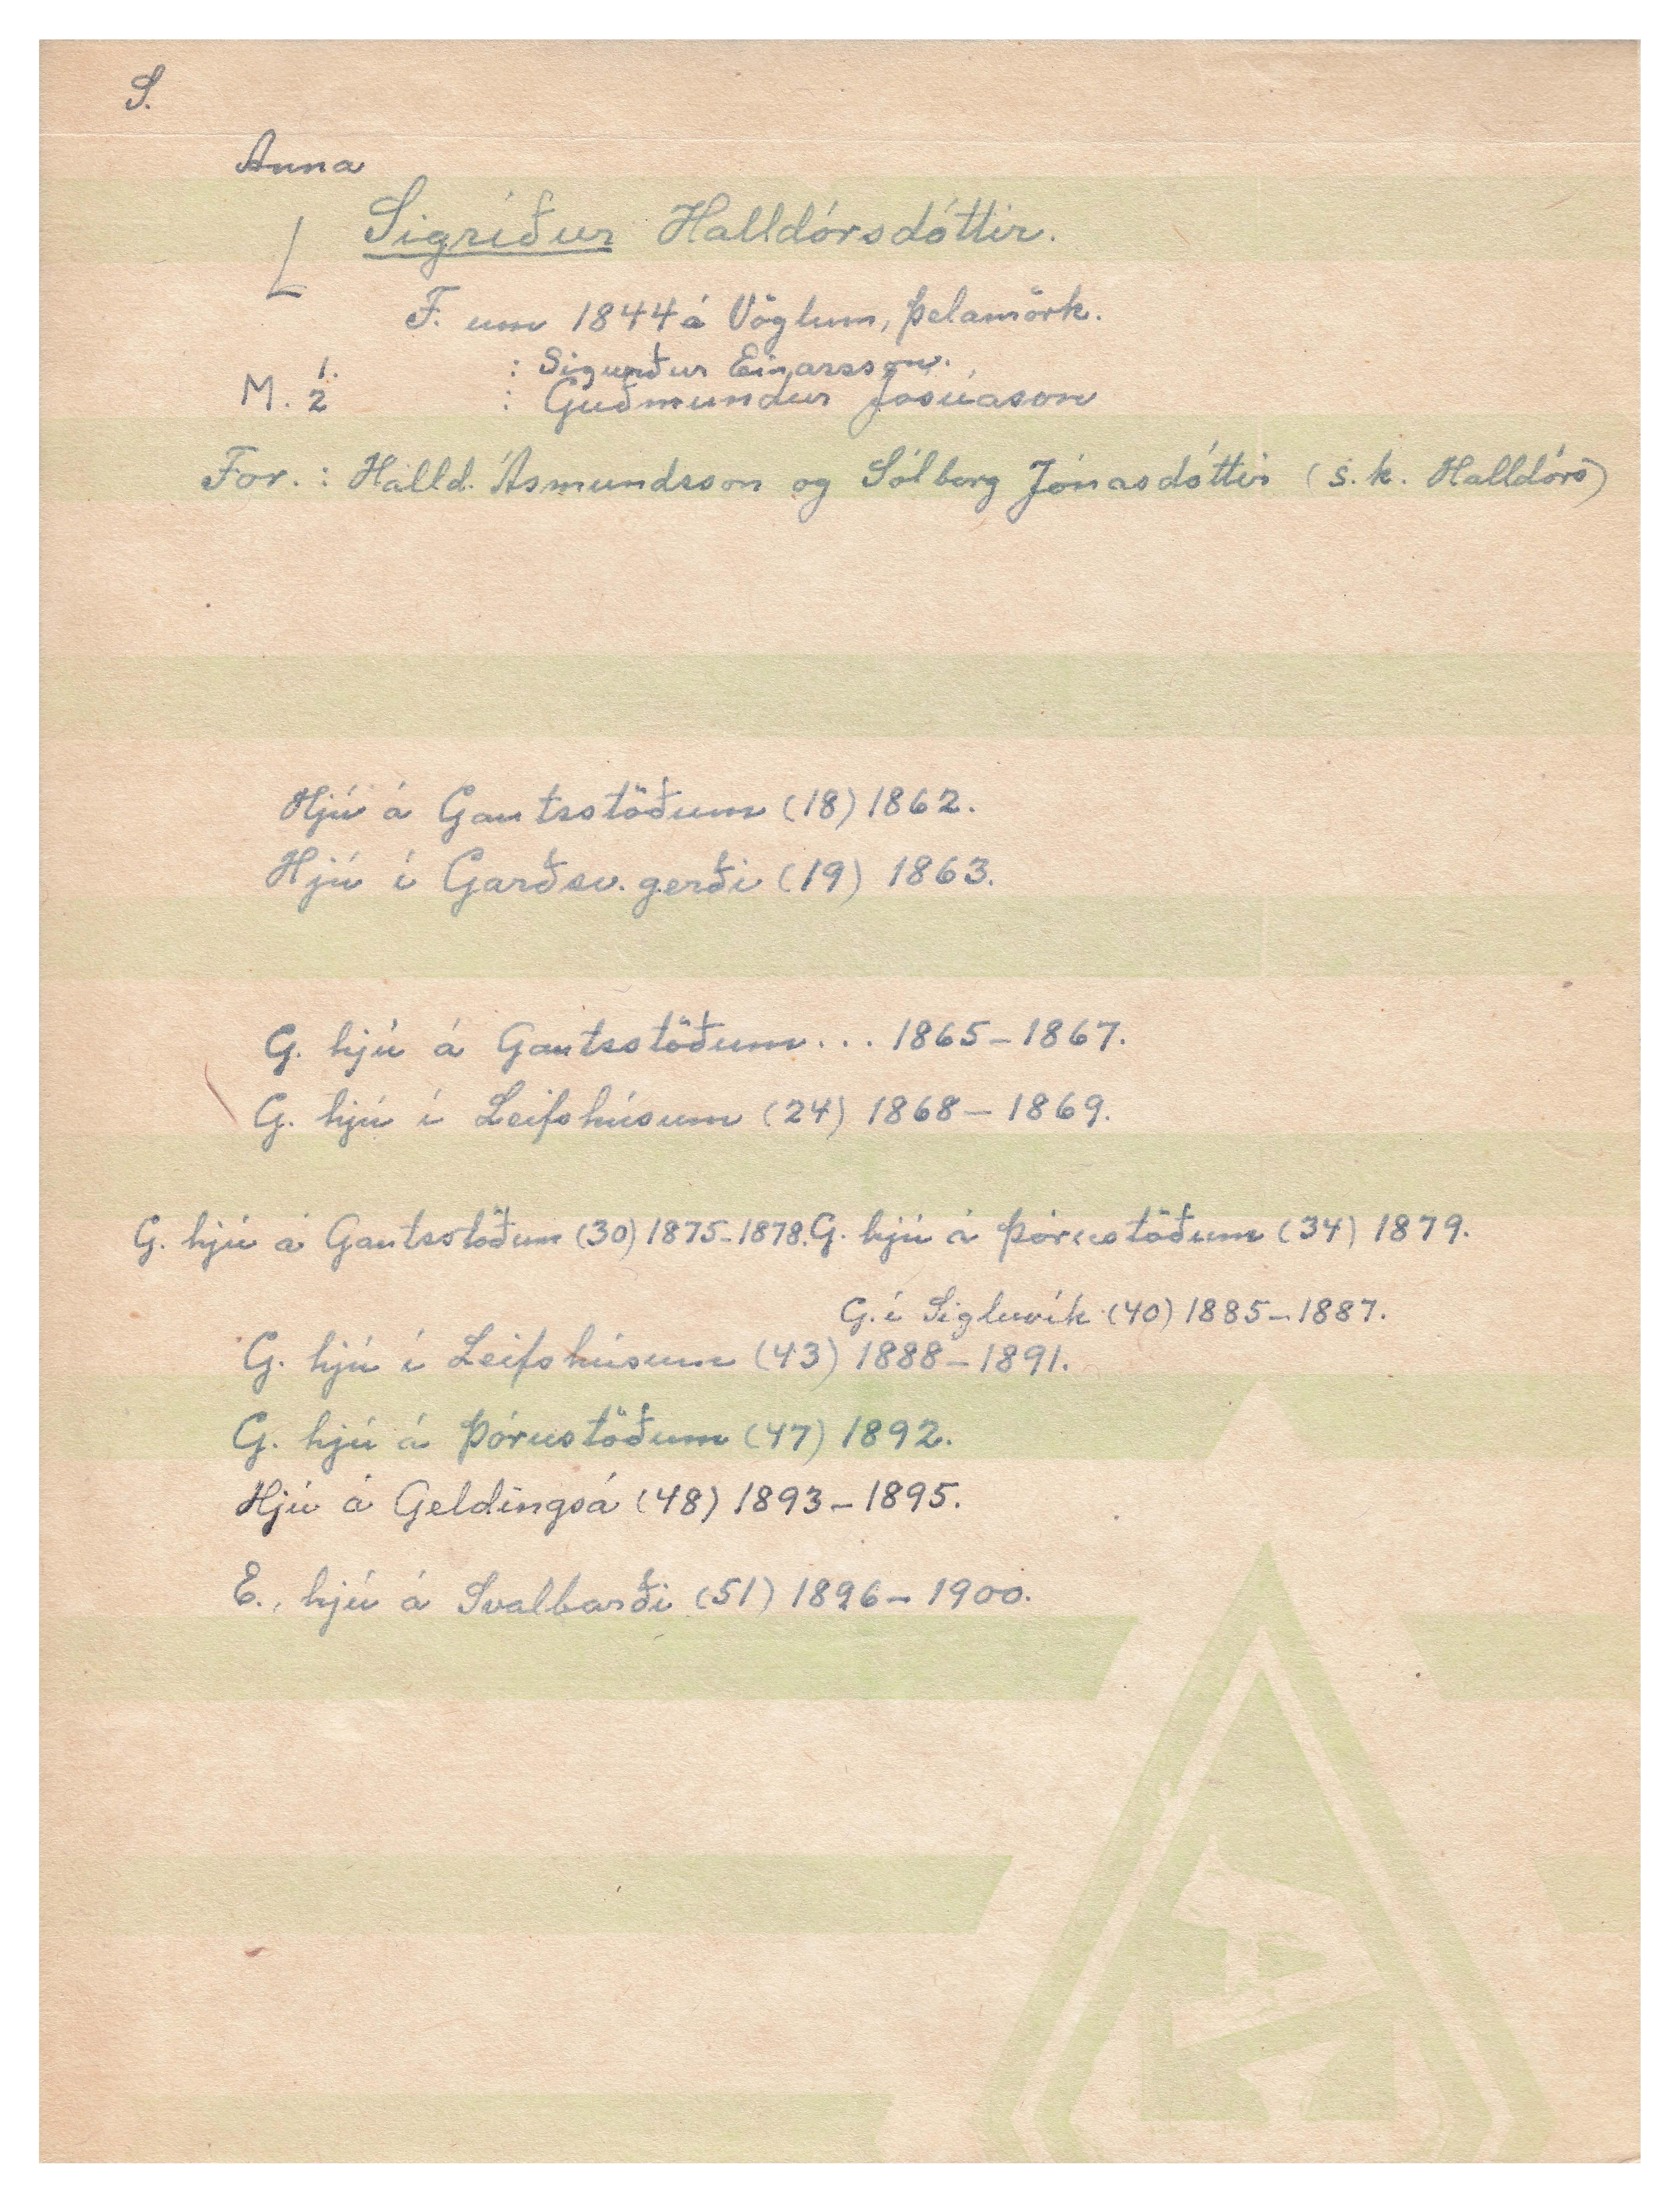 S.
Anna
Sigríður Halldórsdóttir.
F. um 1844 á Vöglum, Þelamörk.
M. 1. : Sigurður Einarsson.
2 : Guðmundur Jósúason
For. : Halld. Ásmundsson og Sólborg Jónasdóttir (s.k. Halldórs)
Hjú á Gautsstöðum (18) 1862.
Hjú í Garðsv.gerði (19) 1863.
G. hjú á Gautsstöðum... 1865-1867.
G. hjú í Leifshúsum (24) 1868-1869.
G. hjú á Gautsstöðum (30) 1875-1878. G. hjú á Þórustöðum (34) 1879.
G. í Sigluvík (40) 1885-1887.
G. hjú í Leifshúsum (43) 1888-1891.
G. hjú á Þórustöðum (47) 1892.
Hjú á Geldingsá (48) 1893-1895.
E., hjú á Svalbarði (51) 1896-1900.